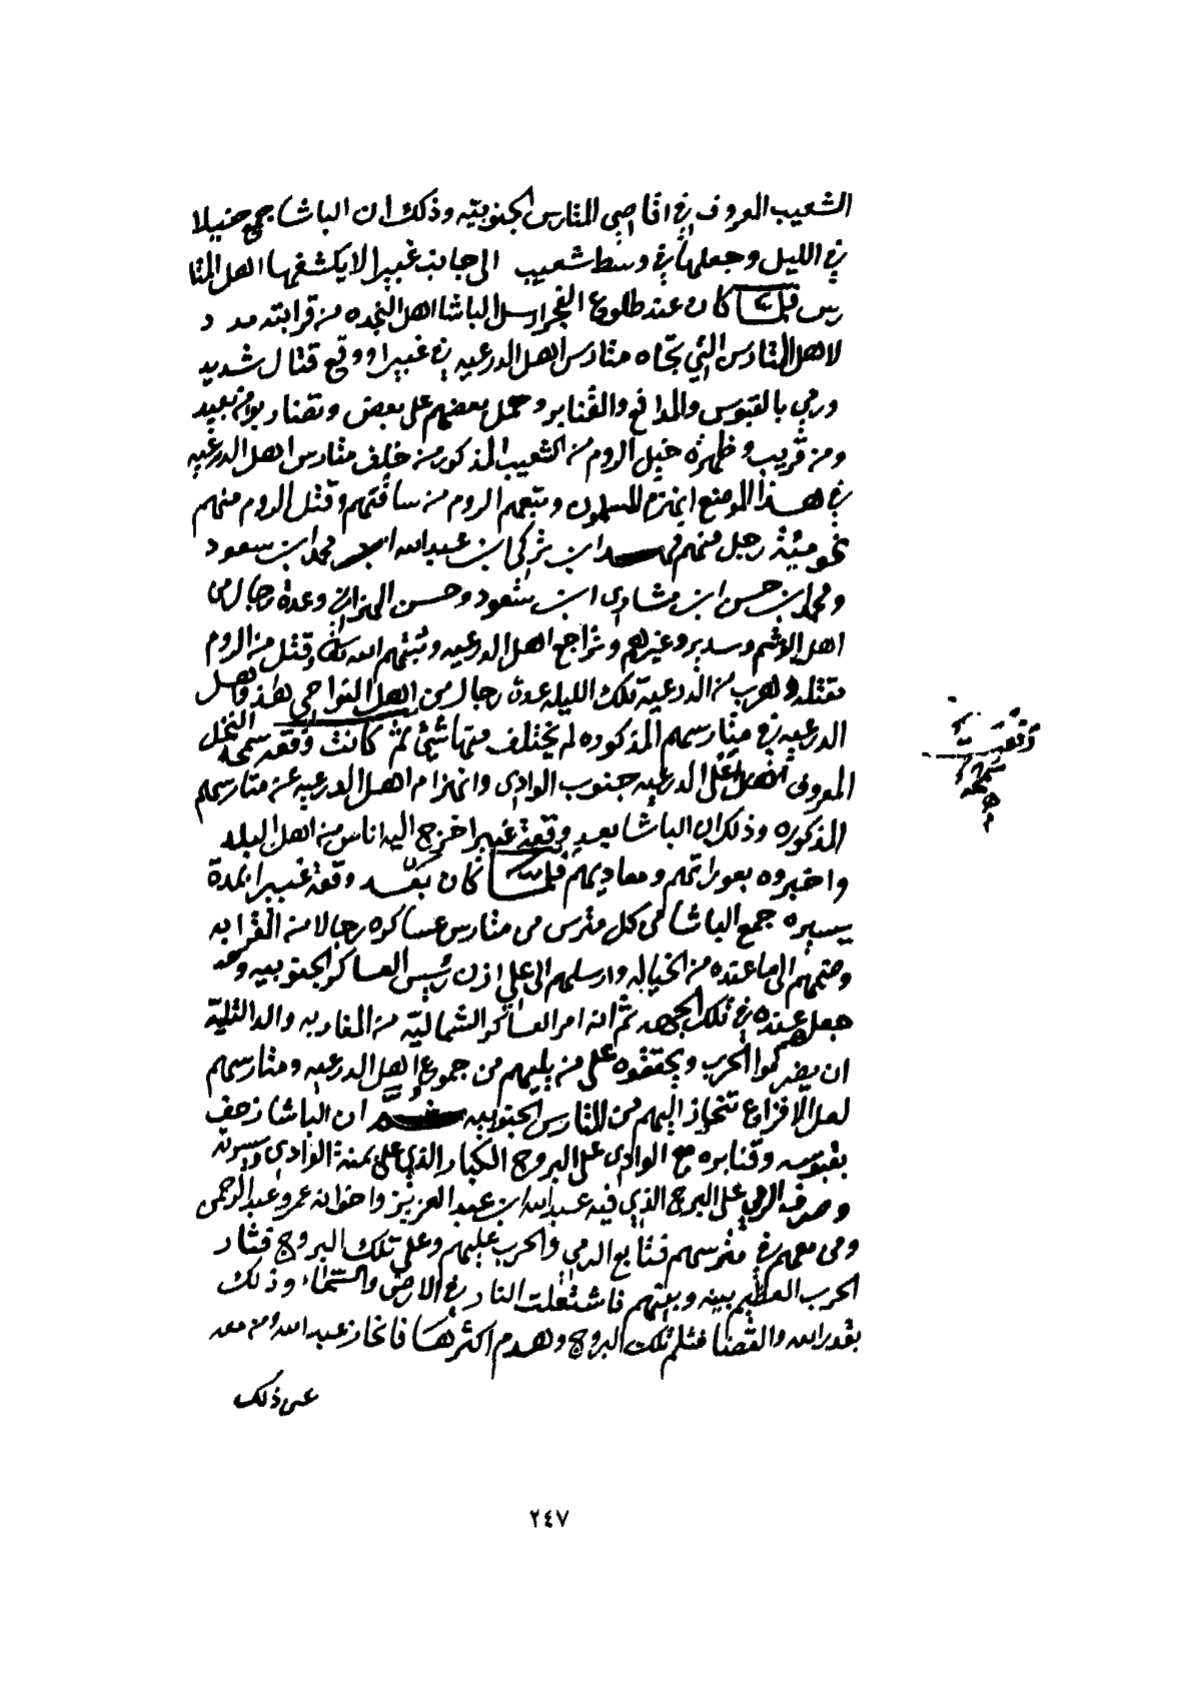 الشعيب المعروف في اقاصي المتارس الجنوبيه وذلك ان الباشا جمع خيلا
في الليل وجعلها في وسط شعيب الى جانب غبيرا لا يكشفها اهل المتا
رس فلما كان عند طلوع الفجر ارسل الباشا اهل النجده من قرابته مدد
لاهل المتارس التي تجاه متارس اهل الدرعيه في غبيرا ووقع قتال شديد
ورمي بالقبوس والمدافع والقنابر وحمل بعضهم على بعض وتضاربوا من بعيد
ومن قريب وظهرة خيل الروم من الشعيب المذكور من خلف متارس اهل الدرعيه
في هذا الموضع انهزم المسلمون وتبعهم الروم من ساقتهم وقتل الروم منهم
نحو مئة رجل منهم فهد ابن تركي ابن عبدالله ابن محمد ابن سعود
ومحمد ابن حسن ابن مشاري ابن سعود وحسن الهزاني وعدة رجال من
اهل الوشم وسدير وغيرهم وتراجع اهل الدرعيه وثبتهم الله وقتل من الروم
مقتله وهرب من الدرعية تلك الليله عدة رجال من اهل النواحي هذا واهل
الدرعيه في متارسهم المذكوره لم يختلف منها شئ ثم كانت وقعة سمحه النخل
المعروف اعلى الدرعيه جنوب الوادي وانهزام اهل الدرعيه عن متارسهم
المذكوره وذلك ان الباشا بعد وقعة غبيرا خرج اليه اناس من اهل البلد
واخبروه بعوراتهم ومعاديهم فلما كان بعد وقعة غبيرا بمدة
يسيره جمع الباشا من كل مترس من متارس عساكره رجالا من القرابه
وضمهم الى ما عنده من الخياله وارسلهم الى علي ازن رئيس العساكر الجنوبيه وقد
جعل عنده في تلك الجهه ثم انه امر العساكر الشمالية من المغاربه والدالتلية
ان يضرموا الحرب ويحققوه على من يليهم من جموع اهل الدرعيه ومتارسهم
لعل الافزاع تنحاز اليهم من المتارس الجنوبيه ثم ان الباشا زحف
بقبوسه وقنابره مع الوادي على البروج الكبار الذي على يمنة الوادي ويسرته
وصرف الرمي على البرج الذي فيه عبدالله ابن عبدالعزيز واخوانه عمر وعبدالرحمن
ومن معهم في مترسهم فتتابع الرمي والحرب عليهم وعلى تلك البروج فثار
الحرب العظيم بينه وبينهم فاشتعلت النار في الارض والسماء وذلك
بقدر الله والقضا فثلم تلك البروج وهدم اكثرها فانحاز عبدالله ومن معه
عن ذلك
وقعة
سمحه
٢٤٧